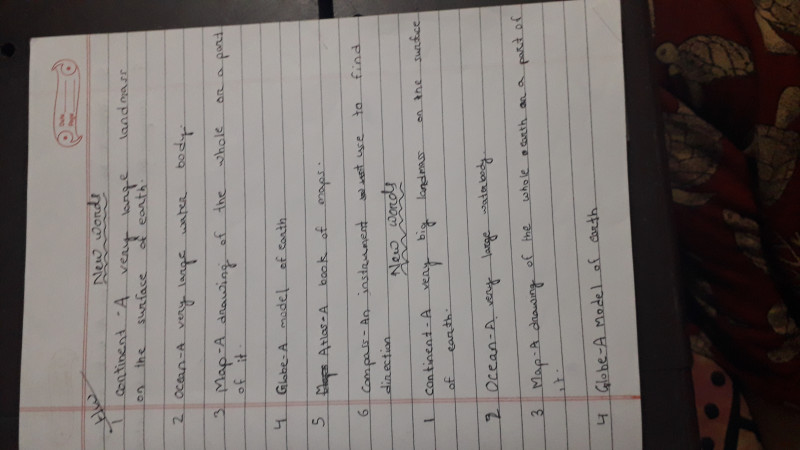 Date
Page
HW
New words
1 Continent-A very large landmass
on the surface of earth.
2 Ocean-A very large water body.
3 Map-A drawing of the whole or a part
of it.
4 Globe-A model of earth
5 Atlas-A book of maps.
6 Compass-An instrument use to find
direction
New words
1 Continent-A very big landmass on the surface
of earth.
2 Ocean-A very large waterbody.
3 Map-A drawing of the whole earth or a part of
it.
4 Globe-A Model of earth